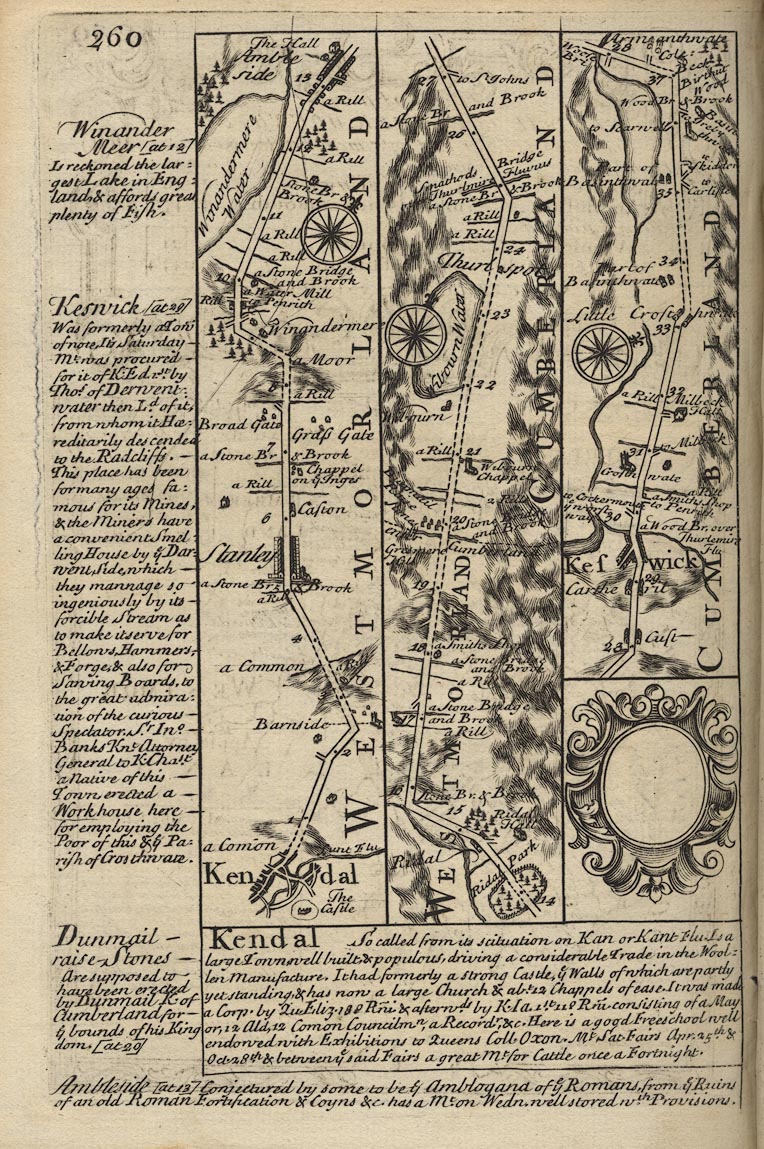 260
Winander
Meer [at 12]
Is reckoned the lar-
gest Lake in Eng-
land, & affords great
plenty of Fish.
Keswick [at 29]
Was formerly a Town
of note, Its Saturday
Mt. was procured
for it of K. Ed. 1st. by
Thos. of Derwent-
water then Ld. of it,
from whom it Hæ-
reditarily descended
to the Radcliffs.
This place has been
for many ages fa-
mous for its Mines,
& the Miners have
a convenient Smel
ling House by ye Dar
went side, which
they mannage so
ingeniously by its
forcible Stream as
to make it serve for
Bellows, Hammers,
& Forge, & also for
Sawing Boards, to
the great admira-
tion of the curious
Spectator. Sr. Jno.
Banks Knt. Attorney
General to K. Chas. 1st
a Native of this
Town erected a
Work house here
for employing the
Poor of this & ye Pa-
rish of Crosthwate.
Dunmail
raise Stones
Are supposed to
have been erected
by Dunmail K. of
Cumberland for
ye bounds of his King
dom. [at 20]
The Hall
Amble
side
13
a Rill
12
a Rill
Stone Br. &
Brook
Winandermere
Water
11
a Rill
a Rill
10
a Stone Bridge
and Brook
a Water Mill
to Penrith
Rill
Winandermere
a Moor
8
a Rill
Broad Gate
Grass Gate
7
a Stone Br. & Brook
Chappel
on ye Inges
a Rill
Casion
6
Stanley
a Stone Br. & Brook
a Rill
4
a Common
a Rill
3
Barnside
2
1
a Comion
Kendal
The
Castle
WESTMORLAND
27
to St. Johns
and Brook
a Stone Br.
26
Bridge
Fluvius
Smathods
Thurlmire
a Stone Br. & Brook
a Rill
a Rill
24
Thurlspot
23
Wibourn Water
22
Wibourn
a Rill
21
Wibourn
Chappel
a Rill
20
a Stone
Bridge
and Brook
Gresmere
Hill
Cumberland
19
a Smiths Shop
18
a Stone Bridge
and Brook
a Rill
a Stone Bridge
17
and Brook
a Rill
16
Stone Br. & Brook
15
Ridal
Hall
Ridal
Ridal Park
14
WESTMORLAND
CUMBERLAND
Armeanthwate
38
Wood
Br.
37
Beck
Birthut
Wood
Wood Br.
Brook
to Scarnwell
Part of
Basinthwat
35
to
Skiddon
to
Carlisle
34
Part of
Basinthwat
Little Crosthwate
33
a Rill
32
Milbeck
Hall
31
to Milbeck
Crosthwate
a Rill
to Cockermouth
ye worst
way
a Smiths Shop
to Penrith
30
a Wood Br. over
Thurlemire
Flu
Keswick
29
Carthe ril
Cust
28
CUMBERLAND
Kendal So called from its scituation on Kan or Kant Flu. Is a
large Town well built, & populous, driving a considerable Trade in the Wool-
len Manufacture. It had formerly a strong Castle, ye Walls of which are partly
yet standing, & has now a large Church & abt. 12 Chappels of ease. It was made
a Corp. by Qu. Eliz. 18o Rni. & afterwds. by K. Ia. 1st. 11o Rni. consisting of a May
or, 12 Ald, 12 Comon Councilmn, a Recordr. &c. Here is a good Freeschool well
endowed with Exhibitions to Queens Coll. Oxon. Mt. Sat. Fairs Apr. 25th &
Oct. 28th & between ye said Fairs a great Mt. for Cattle once a Fortnight.
Ambleside [at 12] Conjectured by some to be ye Amblogana of ye Romans, from ye Ruins
of an old Roman Fortification & Coyns &c. has a Mt. on Wedn. well stored wth. Provisions.